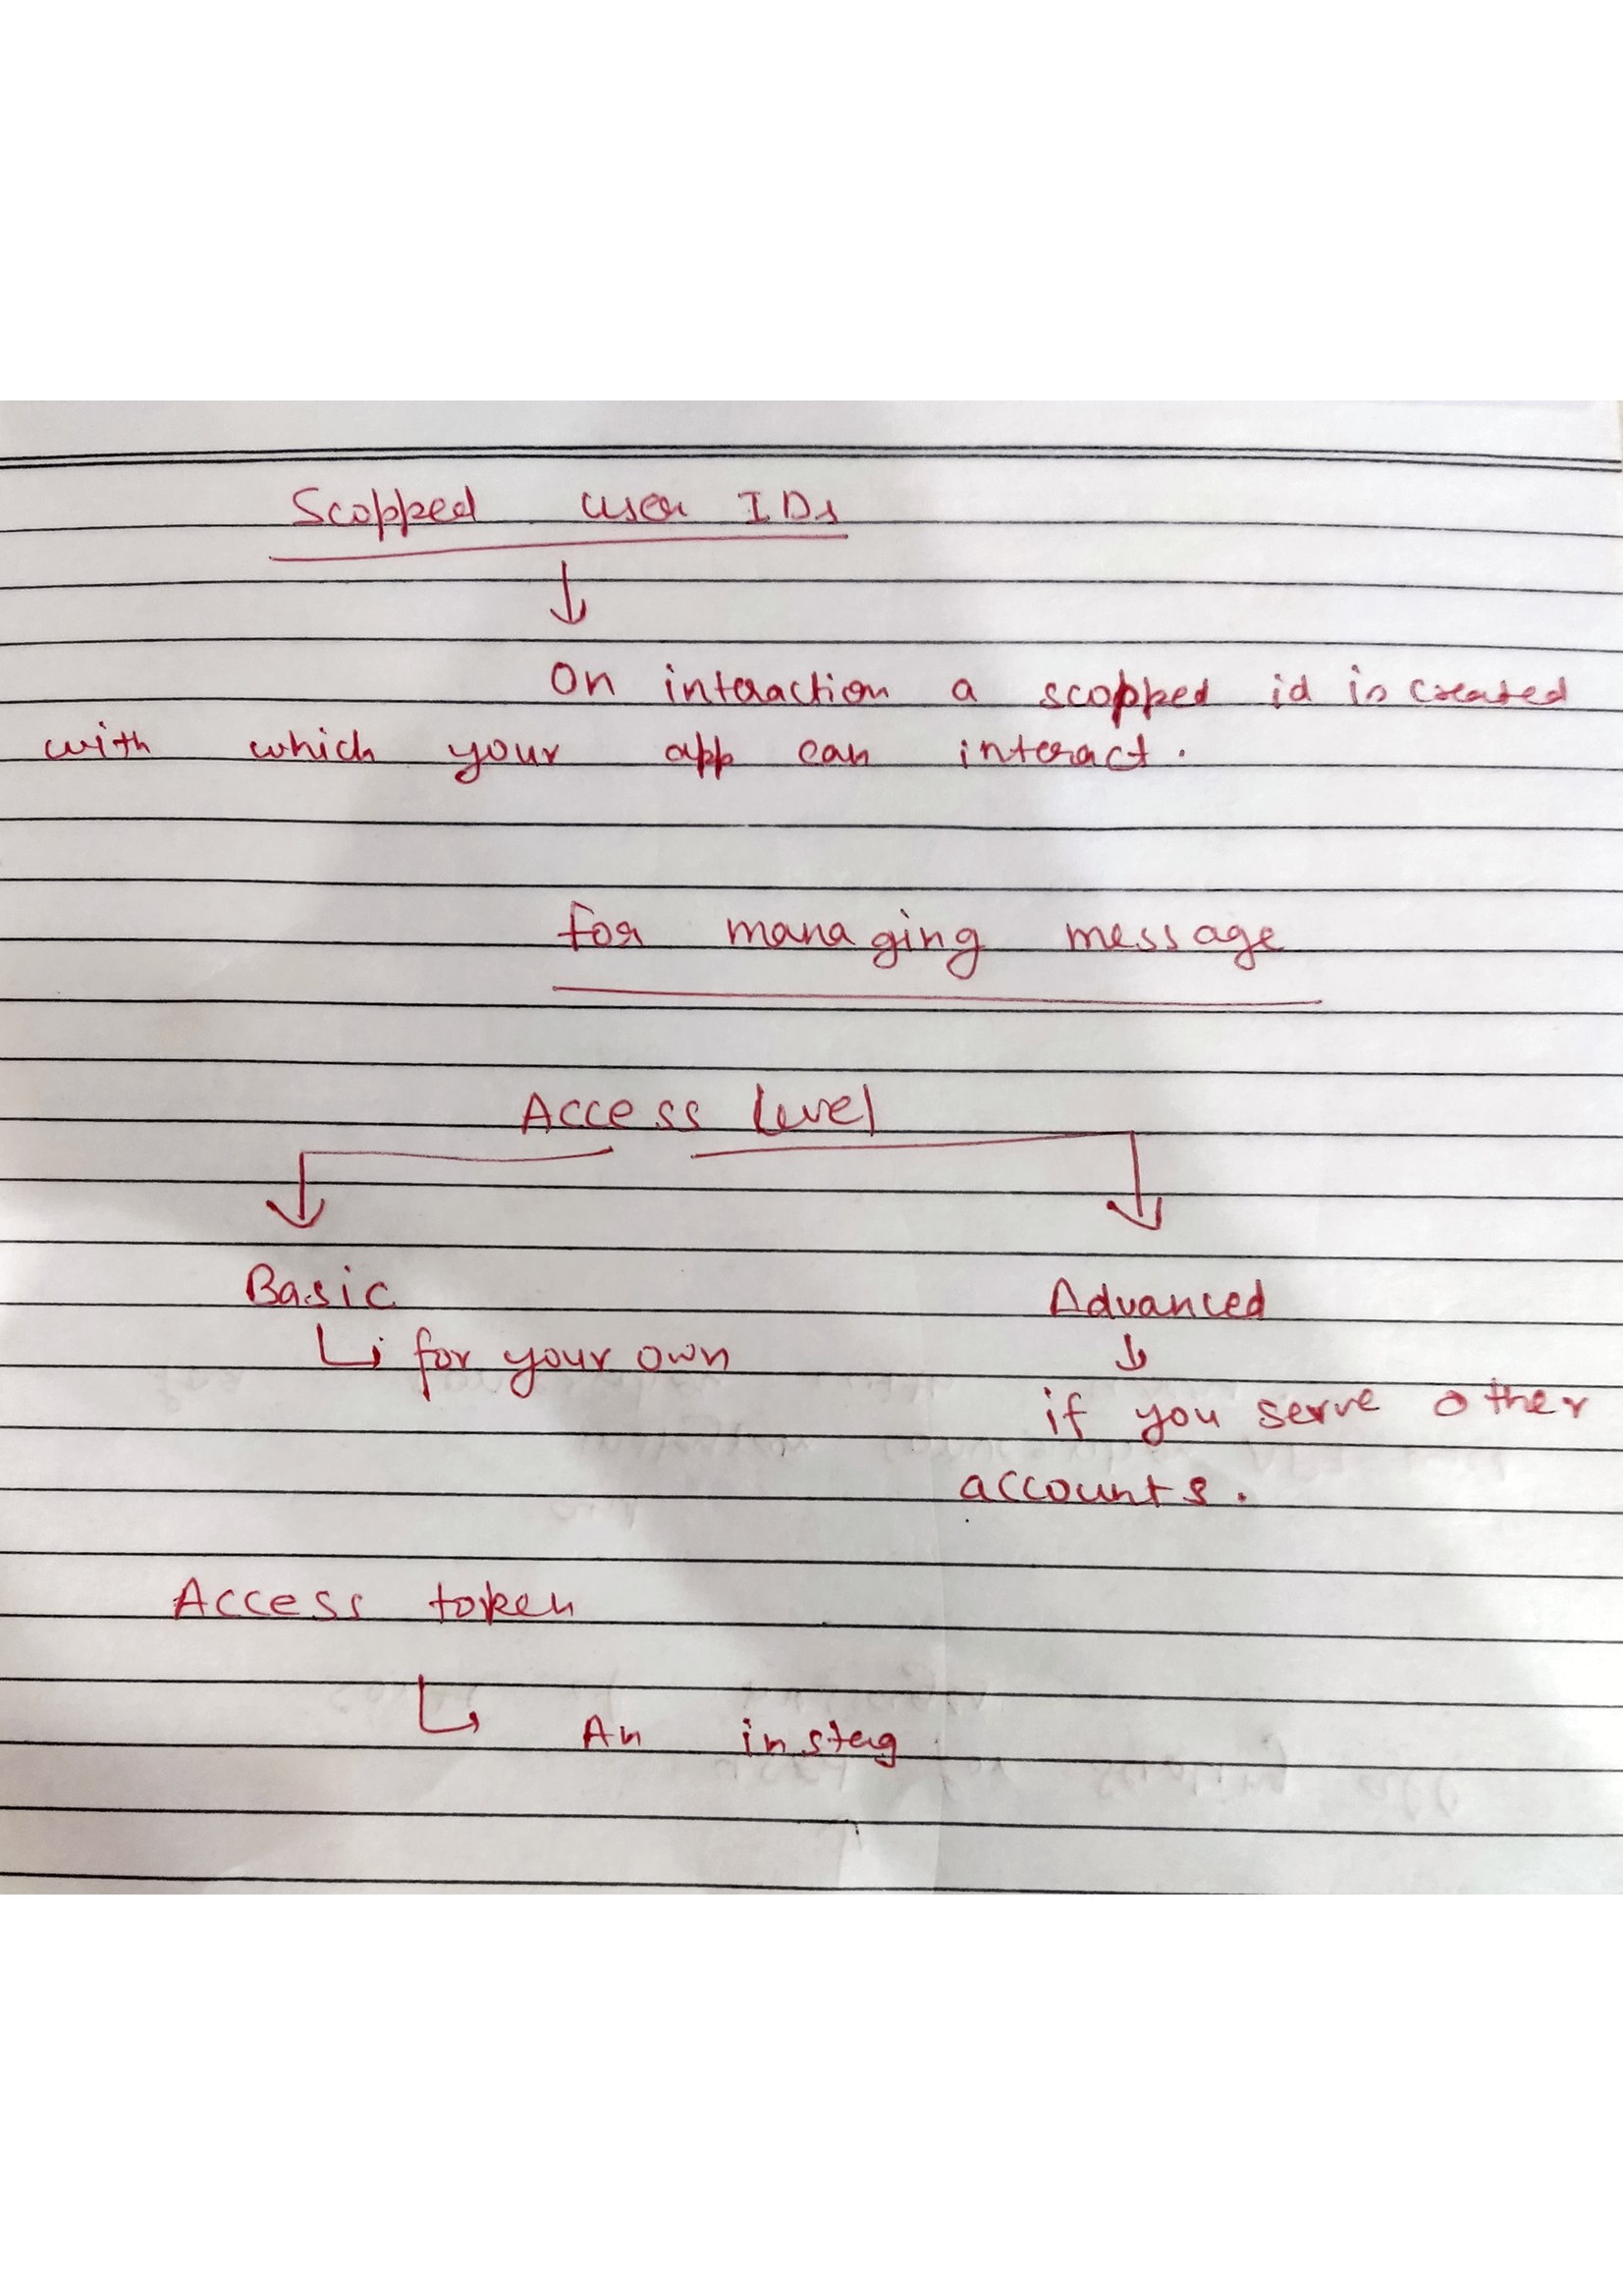 Scopped user IDs
On interaction a scopped id is created
with which your app can interact.
for managing message
Access level
Basic
Advanced
for your own
if you serve other
accounts.
Access token
An instag